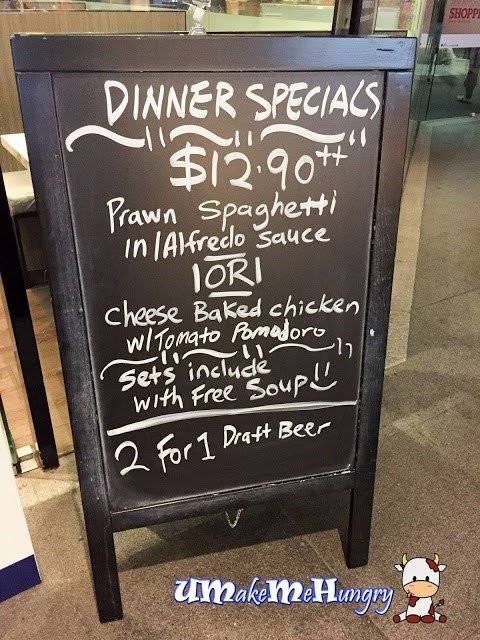 SHOPPI
DINNER SPECIALS
$12.90++
Prawn Spaghetti
in Alfredo sauce
OR
cheese Baked chicken
w/Tomato Pomodoro
sets include
with Free Soup
2 For 1 Draft Beer
UMakeMeHungry